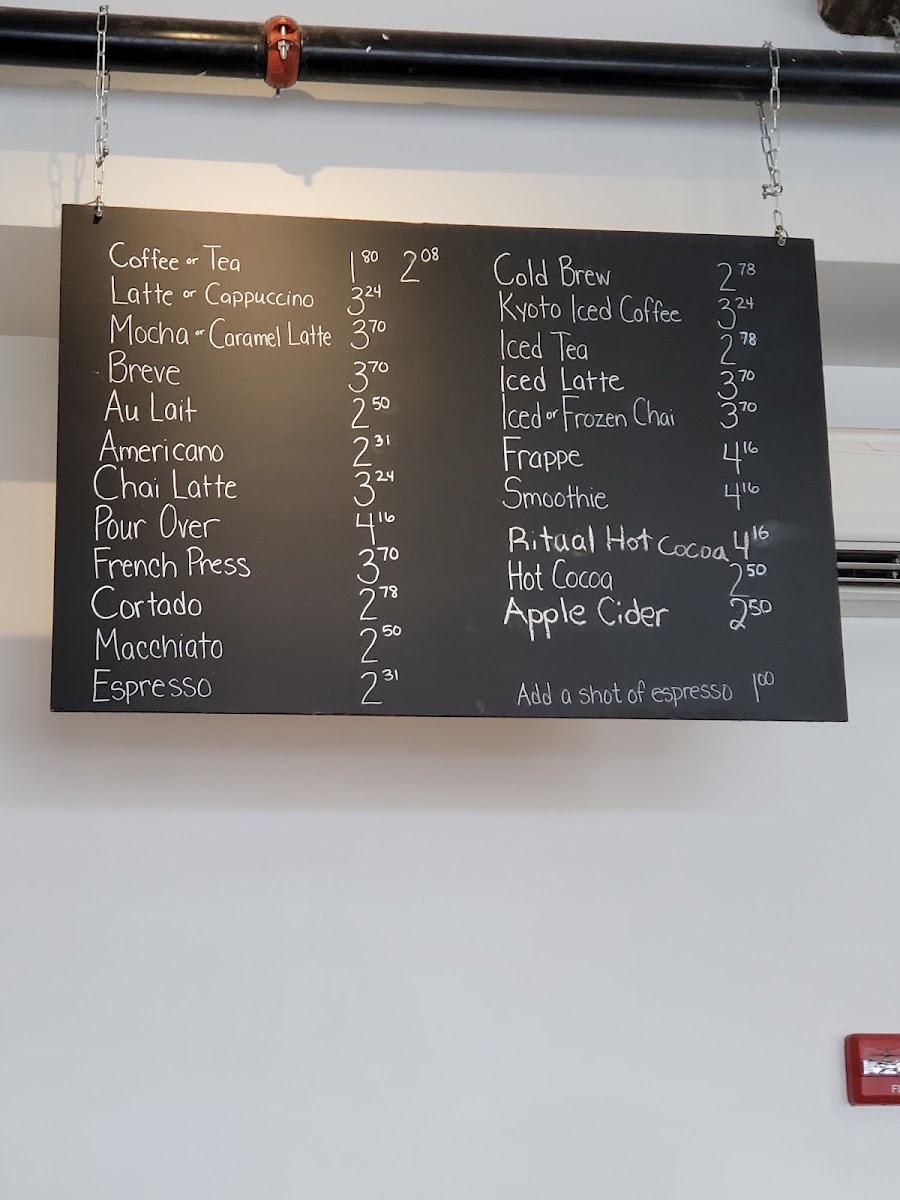 Coffee or Tea 1 80 2 08
Latte or Cappuccino 3 24
Mocha or Caramel Latte 3 70
Breve 3 70
Au Lait 2 50
Americano 2 31
Chai Latte 3 24
Pour Over 4 16
French Press 3 70
Cortado 2 78
Macchiato 2 50
Espresso 2 31
Cold Brew 2 78
Kyoto Iced Coffee 3 24
Iced Tea 2 78
Iced Latte 3 70
Iced or Frozen Chai 3 70
Frappe 4 16
Smoothie 4 16
Ritual Hot Cocoa 4 16
Hot Cocoa 2 50
Apple Cider 2 50
Add a shot of espresso 1 00